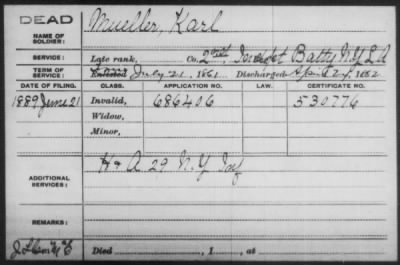 DEAD
NAME OF SOLDIER: Mueller, Karl
SERVICE: Late rank, Co. 2nd Indpt Batty N.Y. L.A
TERM OF SERVICE: Enlisted July 21, 1861. Discharged April 24, 1862
DATE OF FILING. CLASS. APPLICATION NO. LAW. CERTIFICATE NO.
1889 June 21 Invalid, 686406 530776
Widow,
Minor,
ADDITIONAL SERVICES: H & A 29 N.Y. Inf
REMARKS:
Died , 1 , at